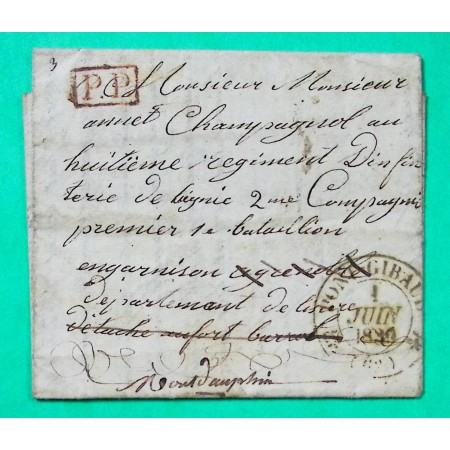 3
P.P
A Monsieur Monsieur
annet Champagnol au
huitième regiment Dinfin
terie de lignie 2 me Compagnie
premier 1e bataillion
engarnison a grenoble
departement de lisere
détaché aufort barraux
Montdauphin
PONTGIBAUD
1
JUIN
(62)